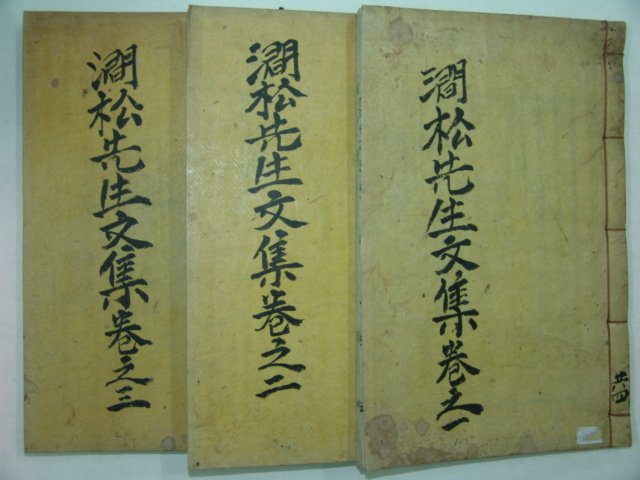 澗松先生文集卷之一
共四
澗松先生文集卷之二
澗松先生文集卷之三